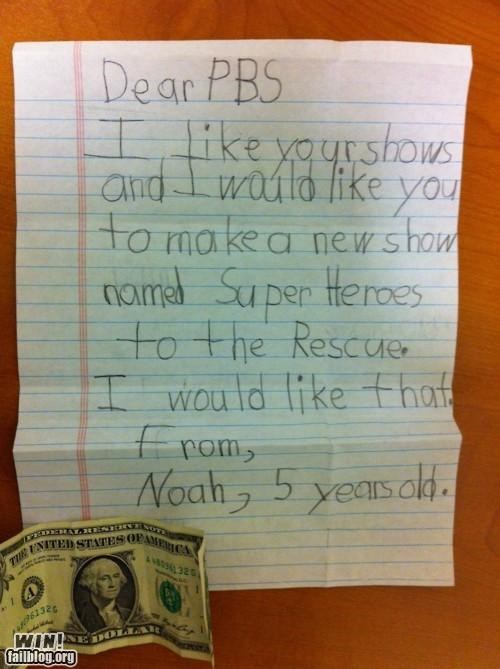 Dear PBS
I like your shows
and I would like you
to make a new show
named Super Heroes
to the Rescue.
I would like that.
From,
Noah, 5 years old.
FEDERAL RESERVE NOTE
THE UNITED STATES OF AMERICA
ONE DOLLAR
WIN!
failblog.org